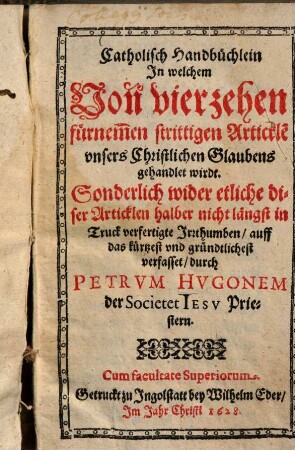 Catholisch Handbüchlein
In welchem
Von vierzehen
fürnemen strittigen Articklē
vnsers Christlichen Glaubens
gehandlet wirdt.
Sonderlich wider etliche di-
ser Articklen halber nicht längst in
Truck verfertigte Irrthumben / auff
das kürtzest vnd gründtlichest
verfasset / durch
PETRVM HVGONEM
der Societet IESV Prie-
stern.
Cum facultate Superiorum.
Getruckt zu Ingolstatt bey Wilhelm Eder /
Im Jahr Christi 1628.